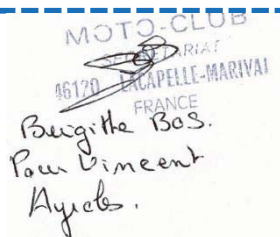 MOTO-CLUB
SECRETARIAT
46120 LACAPELLE-MARIVAL
FRANCE
Brigitte Bos.
Pour Vincent
Ayrols.